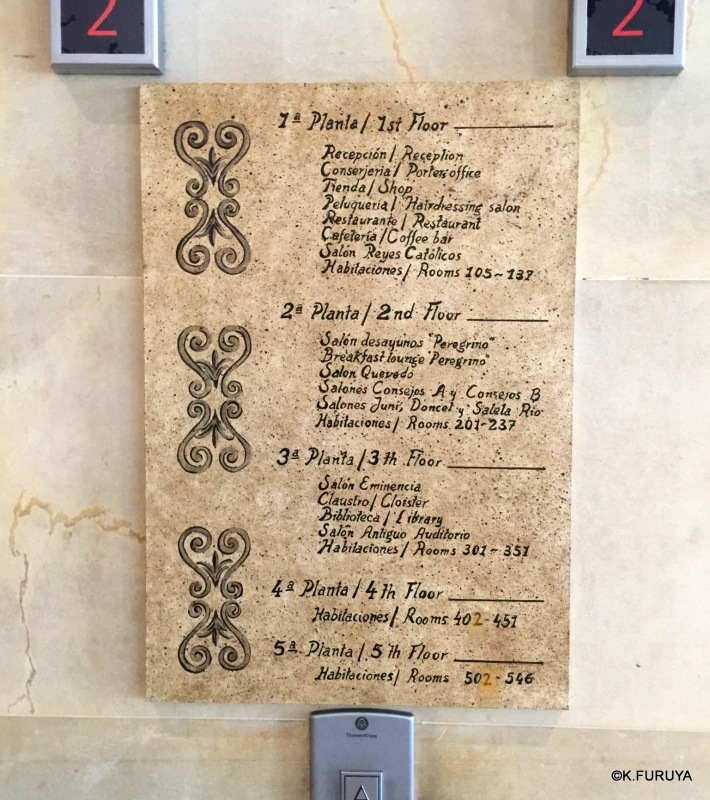 2 2
1ª Planta / 1st Floor
Recepción / Reception
Conserjeria / Porter office
Tienda / Shop
Peluqueria / Hairdressing salon
Restaurante / Restaurant
Cafetería / Coffee bar
Salón Reyes Católicos
Habitaciones / Rooms 105 - 137
2ª Planta / 2nd Floor
Salón desayunos "Peregrino"
Breakfast lounge "Peregrino"
Salon Quevedo
Salones Consejos A y Consejos B
Salones Juni, Doncel y Saleta Rio
Habitaciones / Rooms 201-237
3ª Planta / 3th Floor
Salón Eminencia
Claustro / Cloister
Biblioteca / Library
Salón Antiguo Auditorio
Habitaciones / Rooms 301 - 351
4ª Planta / 4th Floor
Habitaciones / Rooms 402-451
5ª Planta / 5th Floor
Habitaciones / Rooms 502 - 546
ThyssenKrupp
©K.FURUYA